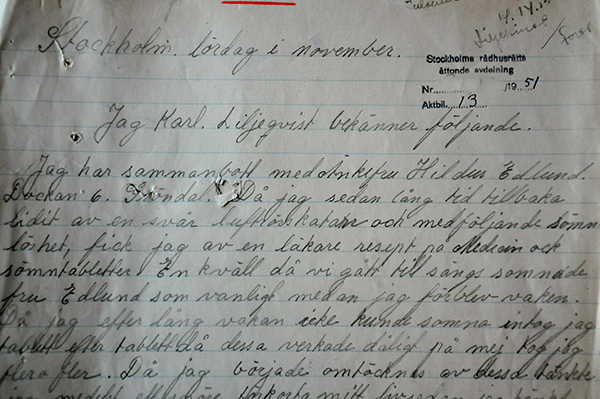 4. 14. 15
Liljekvist
Stockholm. lördag i november.
Stockholms rådhusrätts
åttonde avdelning
Nr 1951
Aktbil. 13
Jag Karl. Liljeqvist bekänner följande.
Jag har sammanbott med änkefru Hildur Edlund.
Dockan 6. Gröndal. Då jag sedan lång tid tillbaka
lidit av en svår luftrörskatarr och medföljande sömn
löshet, fick jag av en läkare resept på Medicin och
sömntabletter. En kväll då vi gått till sängs somnade
fru Edlund som vanligt medan jag förblev vaken.
Då jag efter lång vakan icke kunde somna intog jag
tablett efter tablett då dessa verkade dåligt på mej tog jag
flera fler. Då jag började omtöcknas av dessa tänkte
jag medelst förkorta mitt livsedan